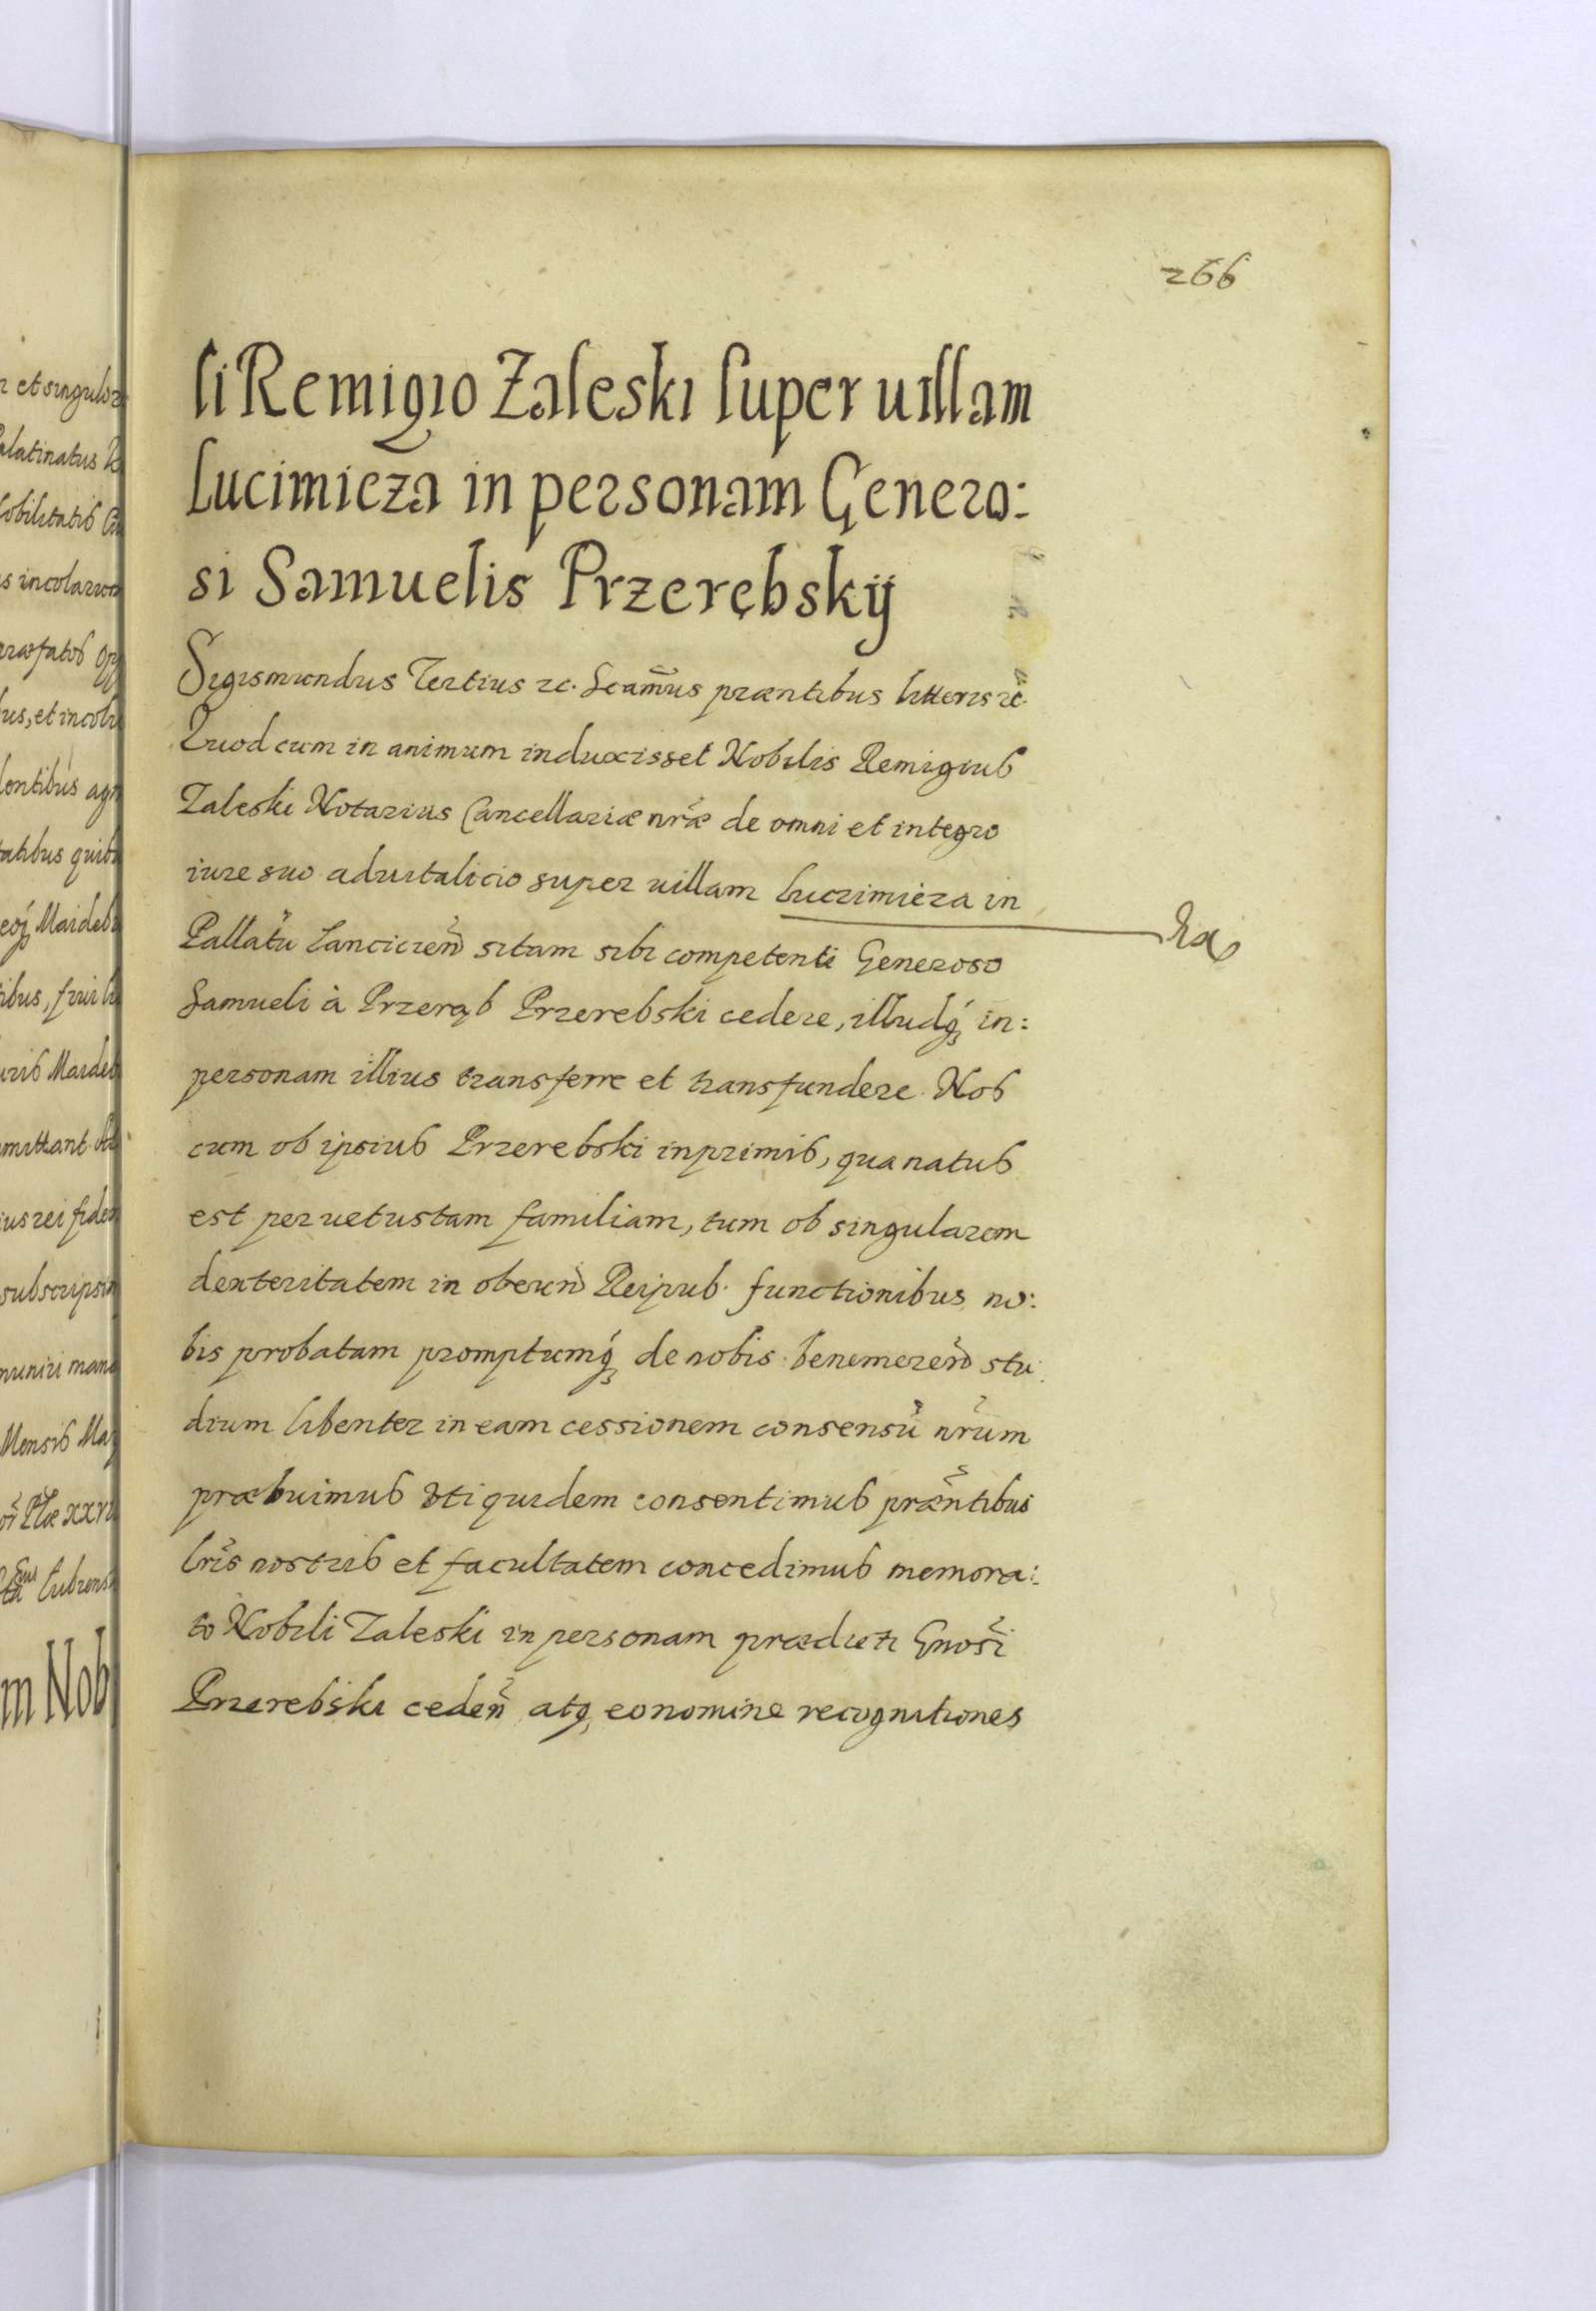 266
li Remigio Zaleski super uillam
Lucimieza in personam Genero:
si Samuelis Przerębskij
Sigismundus Tertius etc. Scam̃us præntibus litteris etc.
Quod cum in animum induxisset Nobilis Remigius
Zaleski Notarius Cancellariæ nr̃æ de omni et integro
iure suo aduitalicio super uillam Luczimieza in
Pallatũ Lanciciен̃ sitam sibi competenti Generoso
Samueli à Przerąb Przerebski cedere, illudq́ in:
personam illius transferre et transfundere. Nos
cum ob ipsius Przerebski inprimis, qua natus
est peruetustam familiam, tum ob singularem
dexteritatem in obeuñ Reipub. functionibus no:
bis probatam promptumq́ de nobis benemereñ stu:
dium libenter in eam cessionem consensũ nr̃um
præbuimus uti quidem consentimus præñtibus
lr̃is nostris et facultatem concedimus memora:
to Nobili Zaleski in personam prædicti Gnosĩ
Przerebski ceden̄ atq, eo nomine recognitiones
et singulor
alatinatus
obilitatis
s incolarum
præfatos
us, et incolis
entibus
atibus quib
Maideb
ibus, frui
uris Maideb
mittant
ius rei fidem
subscripsim
muniri mand
Mensis
m Nob